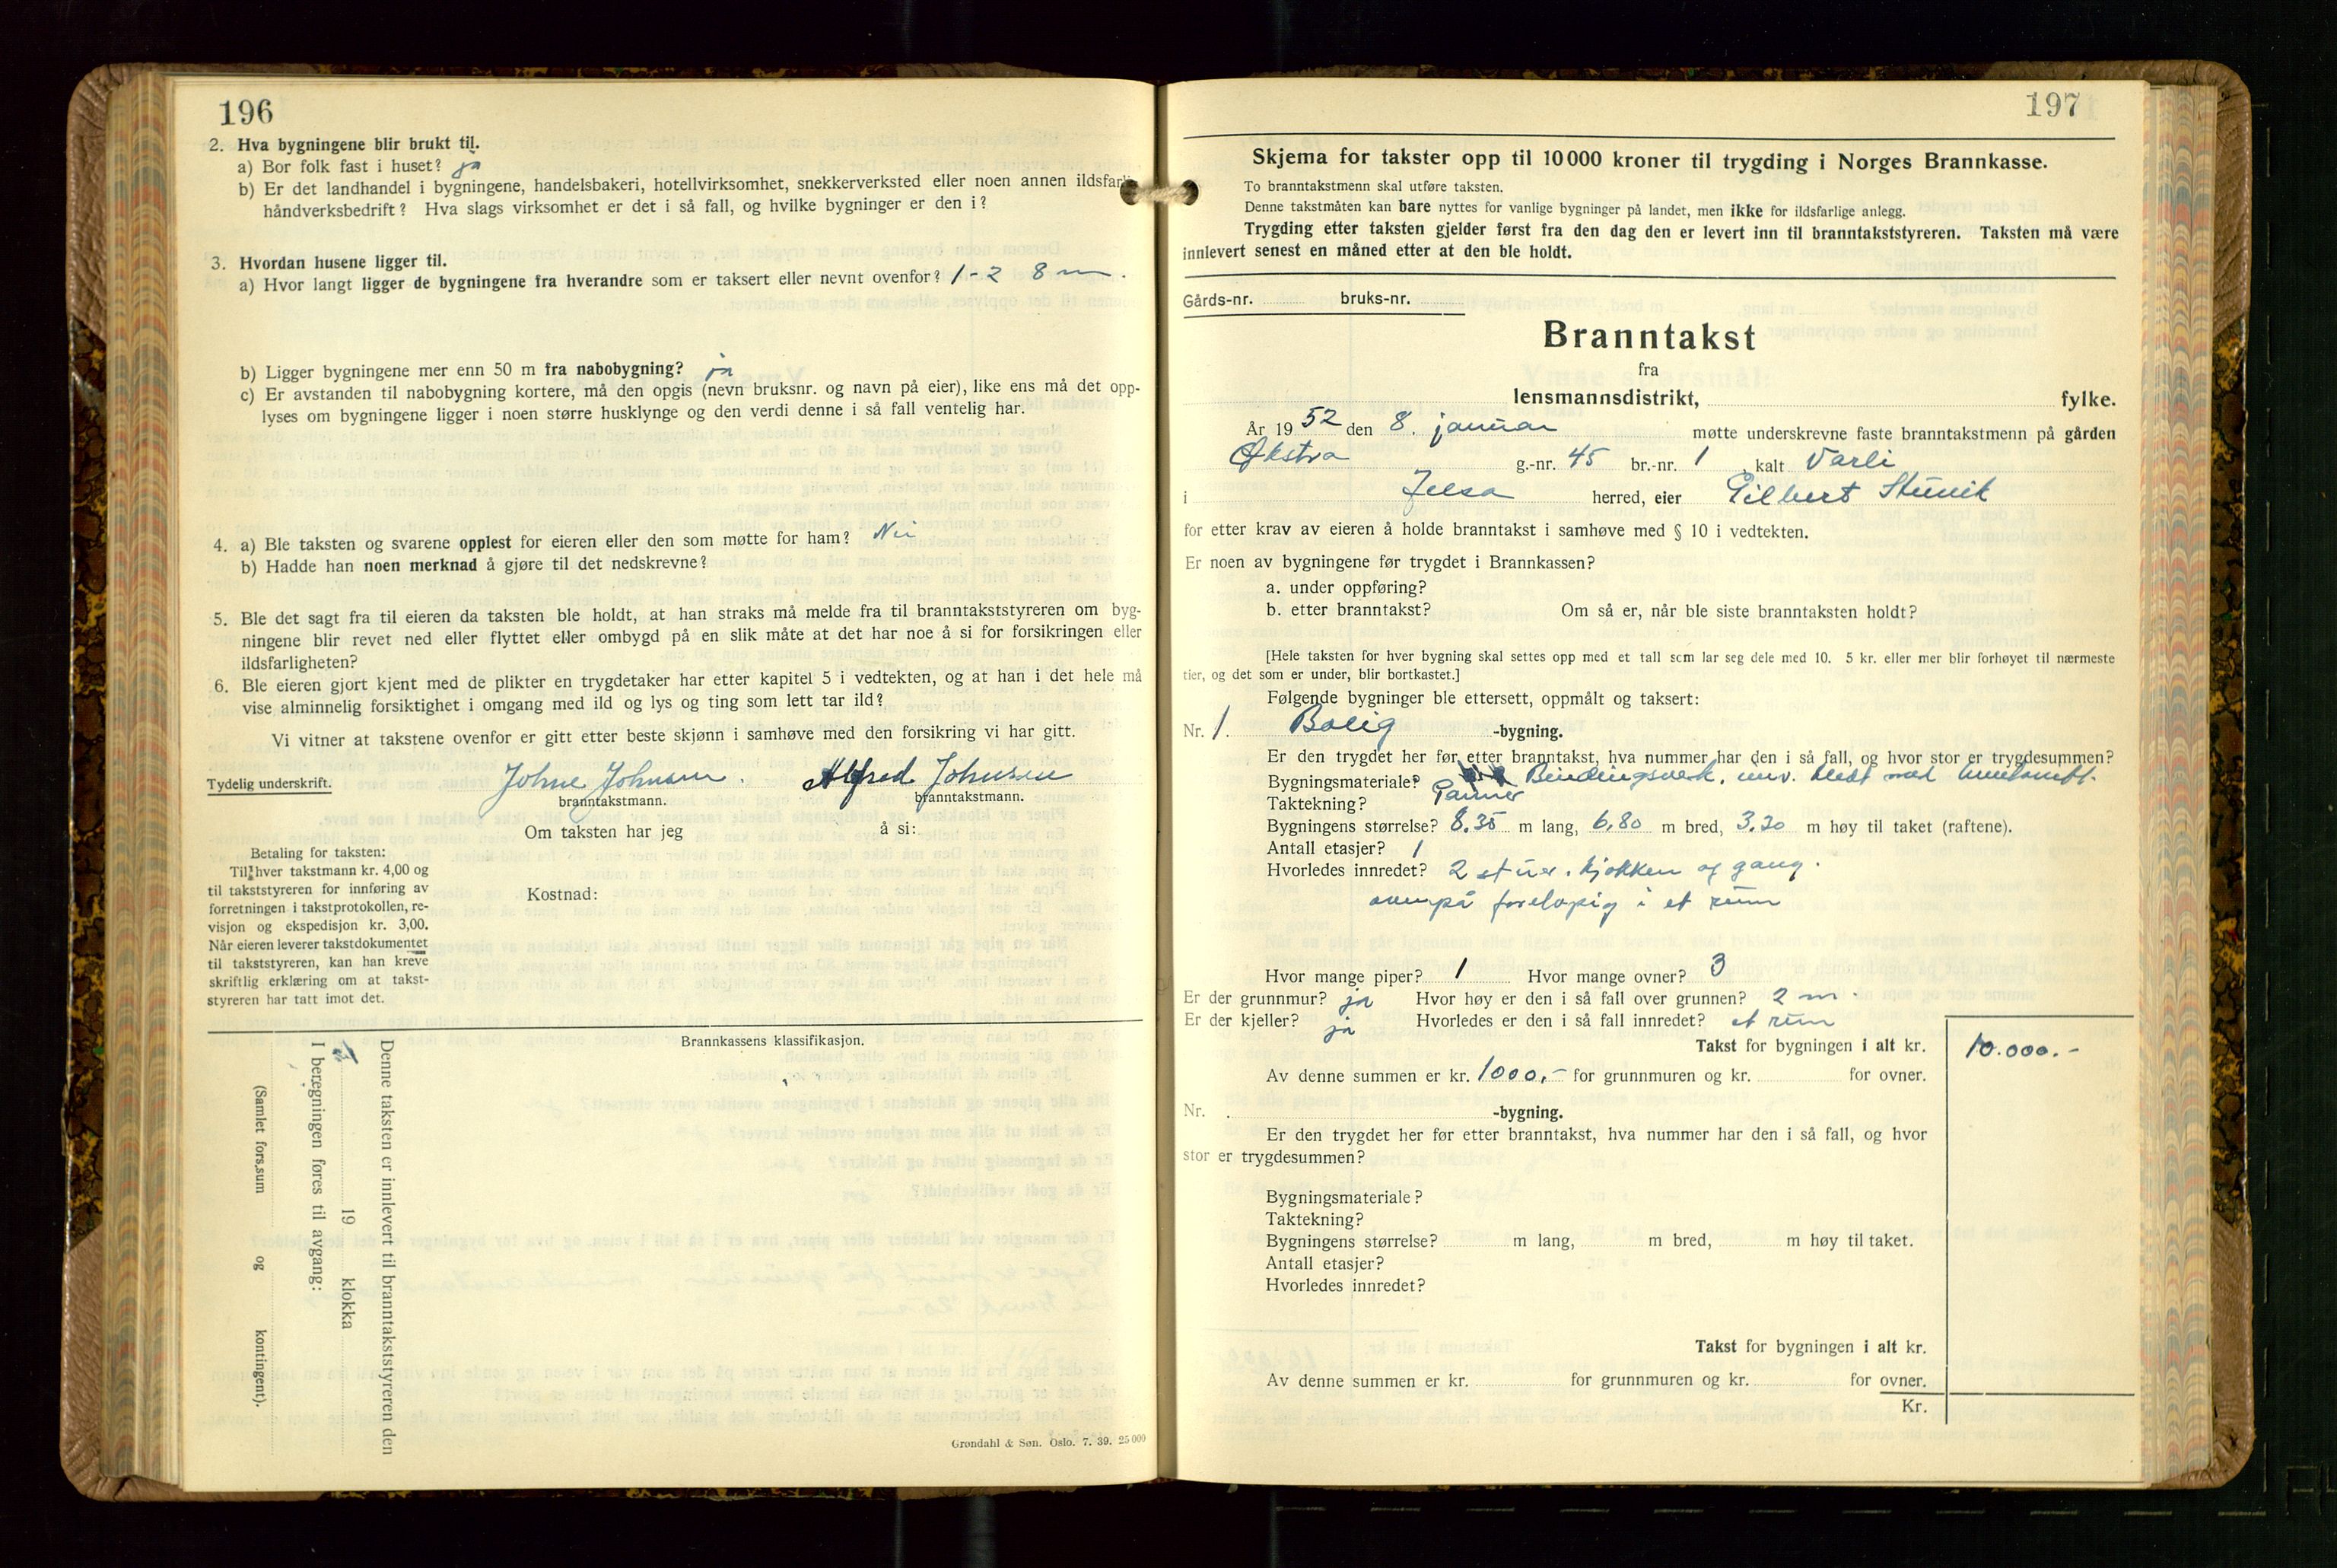 196
2. Hva bygningene blir brukt til.
a) Bor folk fast i huset? ja
b) Er det landhandel i bygningene, handelsbakeri, hotellvirksomhet, snekkerverksted eller noen annen ildsfarlig
håndverksbedrift? Hva slags virksomhet er det i så fall, og hvilke bygninger er den i?
3. Hvordan husene ligger til.
a) Hvor langt ligger de bygningene fra hverandre som er taksert eller nevnt ovenfor? 1-2 8 m.
b) Ligger bygningene mer enn 50 m fra nabobygning? ja
c) Er avstanden til nabobygning kortere, må den opgis (nevn bruksnr. og navn på eier), like ens må det opp-
lyses om bygningene ligger i noen større husklynge og den verdi denne i så fall ventelig har.
4. a) Ble taksten og svarene opplest for eieren eller den som møtte for ham? Nei
b) Hadde han noen merknad å gjøre til det nedskrevne?
5. Ble det sagt fra til eieren da taksten ble holdt, at han straks må melde fra til branntakststyreren om byg-
ningene blir revet ned eller flyttet eller ombygd på en slik måte at det har noe å si for forsikringen eller
ildsfarligheten?
6. Ble eieren gjort kjent med de plikter en trygdetaker har etter kapitel 5 i vedtekten, og at han i det hele må
vise alminnelig forsiktighet i omgang med ild og lys og ting som lett tar ild?
Vi vitner at takstene ovenfor er gitt etter beste skjønn i samhøve med den forsikring vi har gitt.
Tydelig underskrift. Johne Johnsen. Alfred Johnsen
branntakstmann. branntakstmann.
Om taksten har jeg å si:
Betaling for taksten:
Til hver takstmann kr. 4,00 og
til takststyreren for innføring av
forretningen i takstprotokollen, re-
visjon og ekspedisjon kr. 3,00.
Når eieren leverer takstdokumentet
til takststyreren, kan han kreve
skriftlig erklæring om at takst-
styreren har tatt imot det.
Kostnad:
Brannkassens klassifikasjon.
Denne taksten er innlevert til branntakststyreren den
19 klokka
I beregningen føres til avgang:
(Samlet fors.sum og kontingent).
Grøndahl & Søn. Oslo. 7. 39. 25 000
197
Skjema for takster opp til 10 000 kroner til trygding i Norges Brannkasse.
To branntakstmenn skal utføre taksten.
Denne takstmåten kan bare nyttes for vanlige bygninger på landet, men ikke for ildsfarlige anlegg.
Trygding etter taksten gjelder først fra den dag den er levert inn til branntakststyreren. Taksten må være
innlevert senest en måned etter at den ble holdt.
Gårds-nr. bruks-nr.
Branntakst
fra
lensmannsdistrikt, fylke.
År 1952 den 8. januar møtte underskrevne faste branntakstmenn på gården
Økstra g.-nr. 45 br.-nr. 1 kalt Varli
i Jelsa herred, eier Gilbert Stunik
for etter krav av eieren å holde branntakst i samhøve med § 10 i vedtekten.
Er noen av bygningene før trygdet i Brannkassen?
a. under oppføring?
b. etter branntakst? Om så er, når ble siste branntaksten holdt?
[Hele taksten for hver bygning skal settes opp med et tall som lar seg dele med 10. 5 kr. eller mer blir forhøyet til nærmeste
tier, og det som er under, blir bortkastet.]
Følgende bygninger ble ettersett, oppmålt og taksert:
Nr. 1. Bolig -bygning.
Er den trygdet her før etter branntakst, hva nummer har den i så fall, og hvor stor er trygdesummen?
Bygningsmateriale? Bindingsverk, utv. kledt med
Taktekning? Panner
Bygningens størrelse? 8.35 m lang, 6.80 m bred, 3.30 m høy til taket (raftene).
Antall etasjer? 1
Hvorledes innredet? 2 stuer. kjøkken og gang.
ovenpå foreløpig i et rum
Hvor mange piper? 1 Hvor mange ovner? 3
Er der grunnmur? ja Hvor høy er den i så fall over grunnen? 2 m.
Er der kjeller? ja Hvorledes er den i så fall innredet? et rum
Takst for bygningen i alt kr. 10.000.-
Av denne summen er kr. 1000,- for grunnmuren og kr. for ovner.
Nr. . -bygning.
Er den trygdet her før etter branntakst, hva nummer har den i så fall, og hvor
stor er trygdesummen?
Bygningsmateriale?
Taktekning?
Bygningens størrelse? m lang, m bred, m høy til taket.
Antall etasjer?
Hvorledes innredet?
Takst for bygningen i alt kr.
Av denne summen er kr. for grunnmuren og kr. for ovner.
Kr.